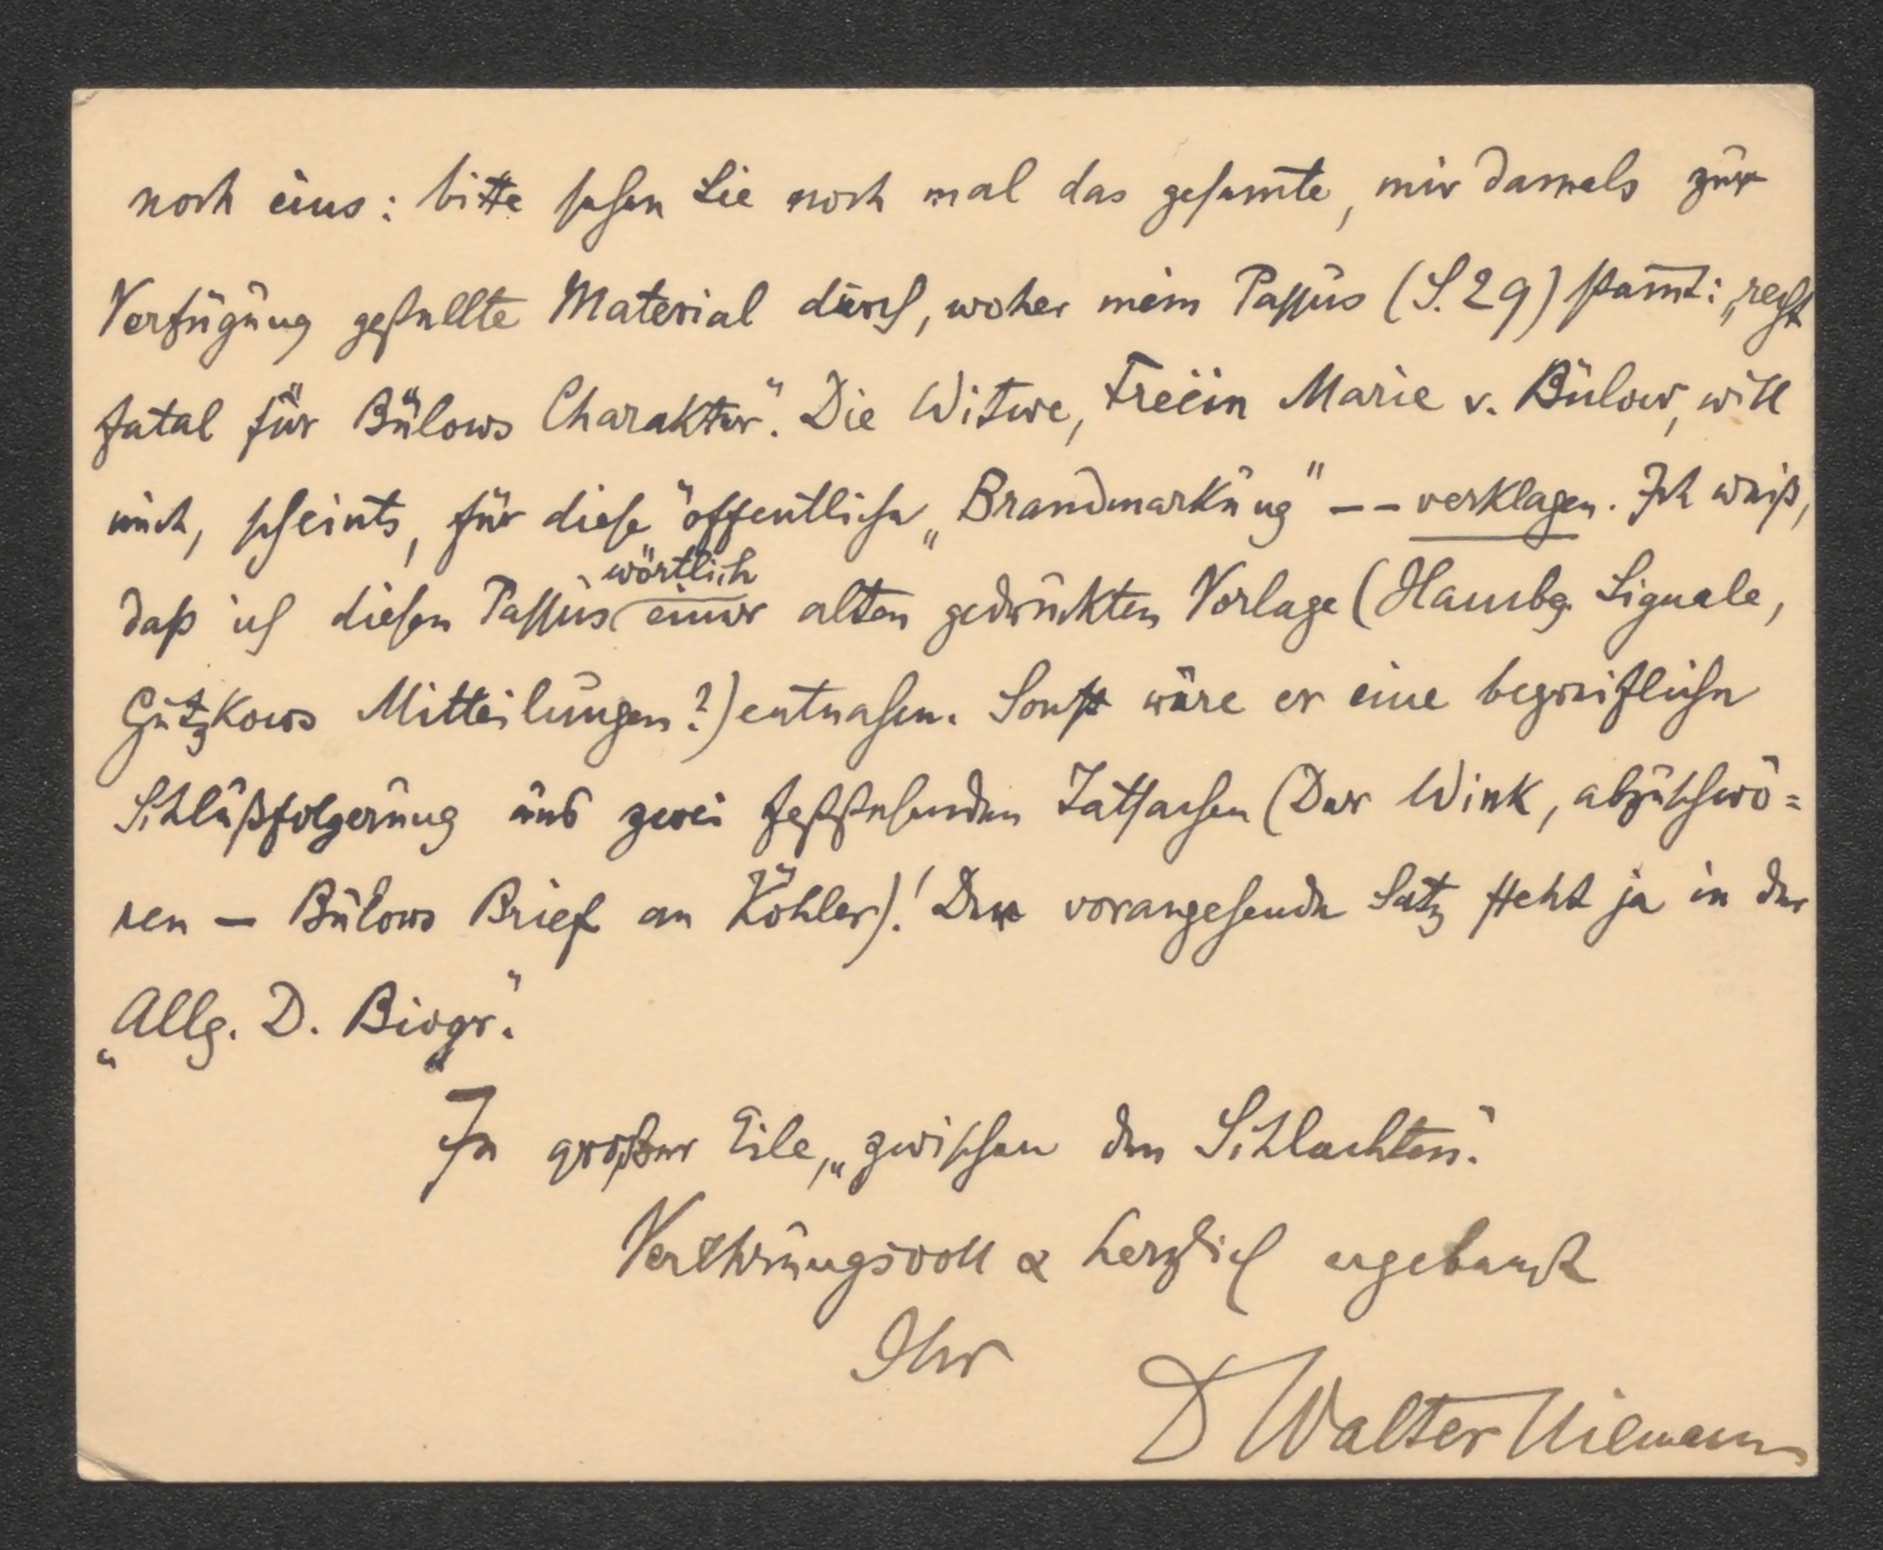 noch eins: bitte sehen Sie noch mal das gesam̅te, mir damals zur
Verfügung gestellte Material durch, woher mein Passus (S. 29) stam̅t: „recht
fatal für Bülows Charakter“. Die Witwe, Freiin Marie v. Bülow, will
mich, scheints, für diese öffentliche „Brandmarkung“ -- verklagen. Ich weiß,
daß ich diesen Passus wörtlich einer alten gedruckten Vorlage (Hambg. Signale,
Gutzkows Mitteilungen?) entnahm. Sonst wäre er eine begreifliche
Schlußfolgerung aus zwei feststehenden Tatsachen (Der Wink, abzuschwö=
ren – Bülows Brief an Köhler)! Der vorangehende Satz steht ja in der
„Allg. D. Biogr.“
In großer Eile, „zwischen den Schlachten“.
Verehrungsvoll & herzlich ergebenst
Ihr
D Walter Niemann